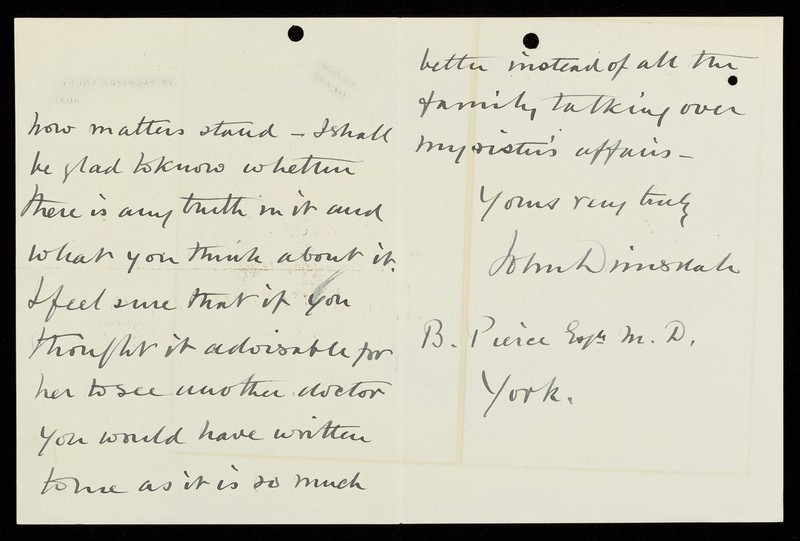 how matters stand – I shall
be glad to know whether
there is any truth in it and
what you think about it.
I feel sure that if you
thought it advisable for
her to see another doctor
you would have written
to me as it is so much
better instead of all the
family talking over
my sister's affairs –
Yours very truly
John Dinsdale
B. Pierce Esqre M. D.
York.